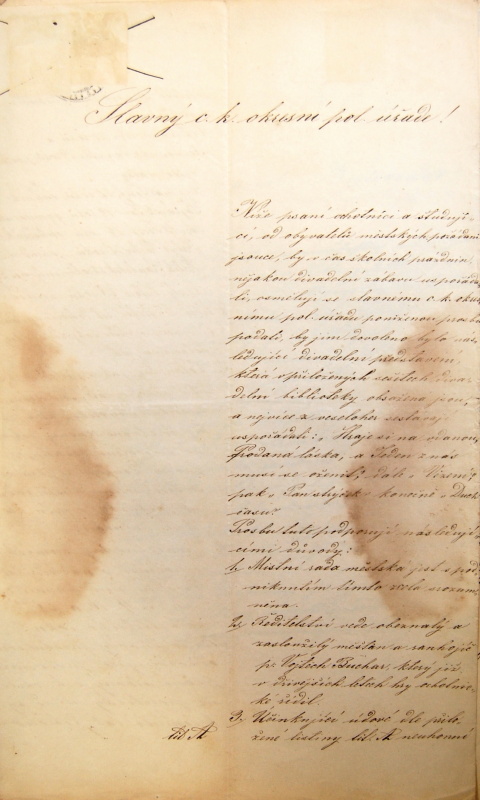 Slavný c. k. okresní pol. úřade!
Níže psaní ochotníci a studují-
cí, od obyvatelů městských požádáni
jsouce, by v čas školních prázdnin
nějakou divadelní zábavu uspořáda-
li, osmělují se slavnému c. k. okre-
nímu pol. úřadu poníženou prosbu
podati, by jim dovoleno bylo nás-
ledující divadelní představení
která v přiložených sešitech diva-
delní biblioteky obsažena jsou,
a nejvíce z veseloher sestávají
uspořádati: „Hraje si na vdanou,
Prodaná láska, a Jeden z nás
musí se oženit; dále
pak „Pan strýček konečně „Duch
času".
Prosbu tuto podporují následují-
cími důvody:
1, Místní rada městská jest s pod-
niknutím tímto zcela srozum-
něna.
2, Ředitelství vede obeznalý a
zasloužilý měšťan a ranhojič
p. Vojtěch Buchar, který již
v dřívějších letech hry ochotnic-
ké řídil.
3, Účinkující údové dle přilo-
lit. A žené listiny lit. A neuhonní